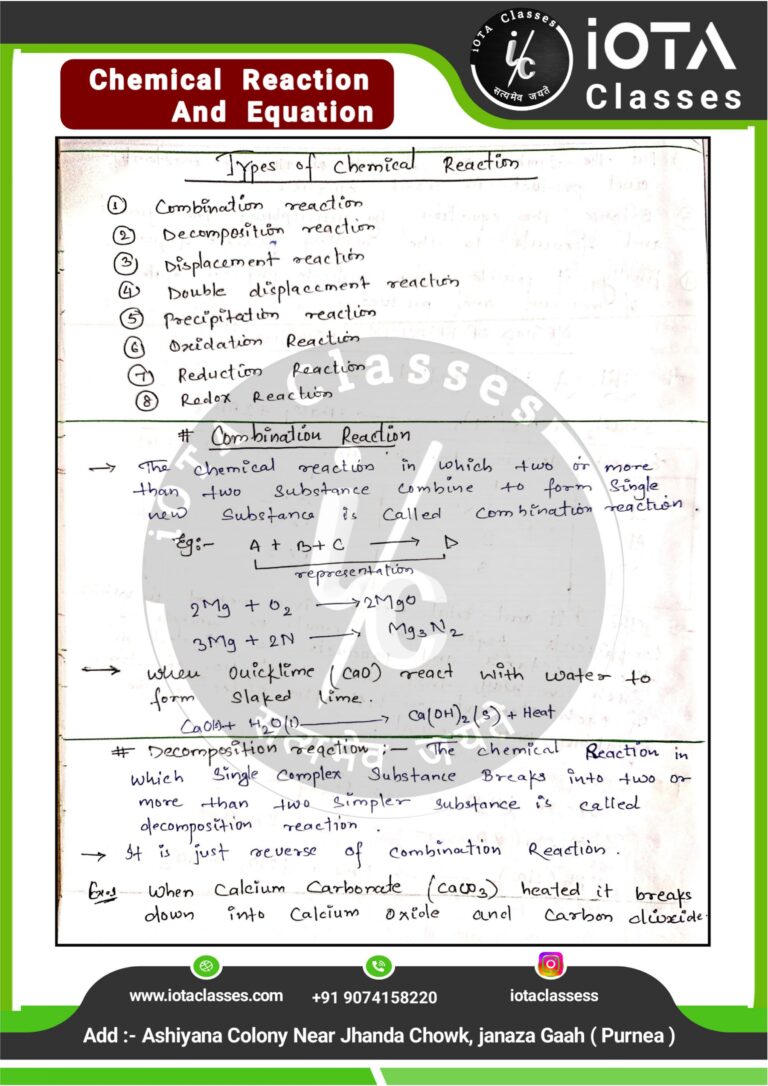 iOTA Classes
i/c
सत्यमेव जयते
iOTA
Classes
Chemical Reaction
And Equation
Types of Chemical Reaction
① Combination reaction
② Decomposition reaction
③ Displacement reaction
④ Double displacement reaction
⑤ Precipitation reaction
⑥ Oxidation Reaction
⑦ Reduction Reaction
⑧ Redox Reaction
iOTA Classes
i/c
सत्यमेव जयते
# Combination Reaction
→ The chemical reaction in which two or more
than two substance combine to form Single
new Substance is Called Combination reaction.
Eg:- A + B + C → D
representation
2Mg + O2 → 2MgO
3Mg + 2N → Mg3N2
↔ When Quicklime (CaO) react with water to
form Slaked lime.
CaO(s) + H2O(l) → Ca(OH)2(s) + Heat
# Decomposition reaction :- The chemical Reaction in
which Single Complex Substance Breaks into two or
more than two simpler substance is called
decomposition reaction.
→ It is just reverse of combination Reaction.
Ex.1 When Calcium Carbonate (CaCO3) heated it breaks
down into Calcium Oxide and Carbon dioxide.
www.iotaclasses.com
+91 9074158220
iotaclassess
Add :- Ashiyana Colony Near Jhanda Chowk, janaza Gaah ( Purnea )